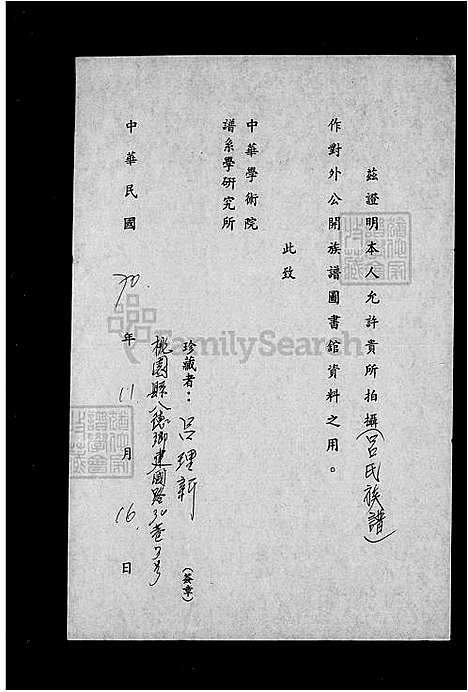 茲證明本人允許貴所拍攝(呂氏族譜)
作對外公開族譜圖書館資料之用。
此致
中華學術院
譜系學研究所
珍藏者：呂理新
(簽章)
桃園縣八德鄉建國路30巷7号
中華民國70年11月16日
FamilySearch